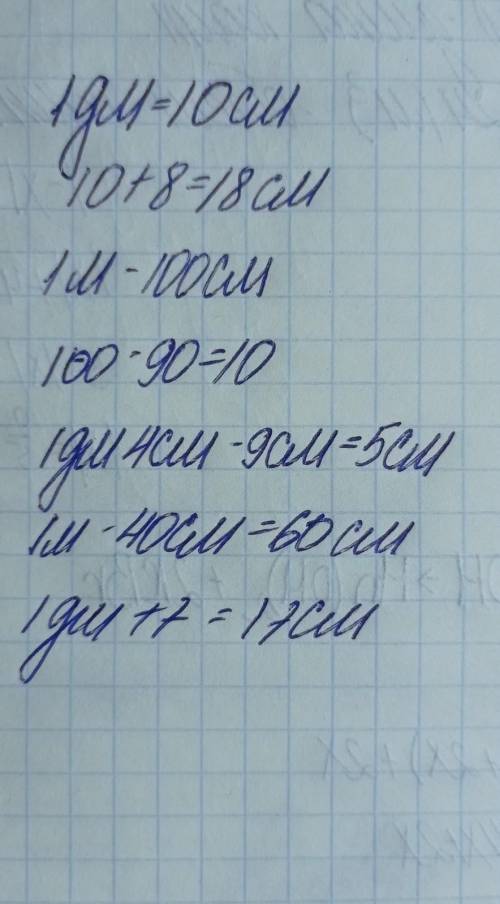 1дм=10см
10+8=18см
1м-100см
100-90=10
1дм4см-9см=5см
1м-40см=60см
1дм+7=17см